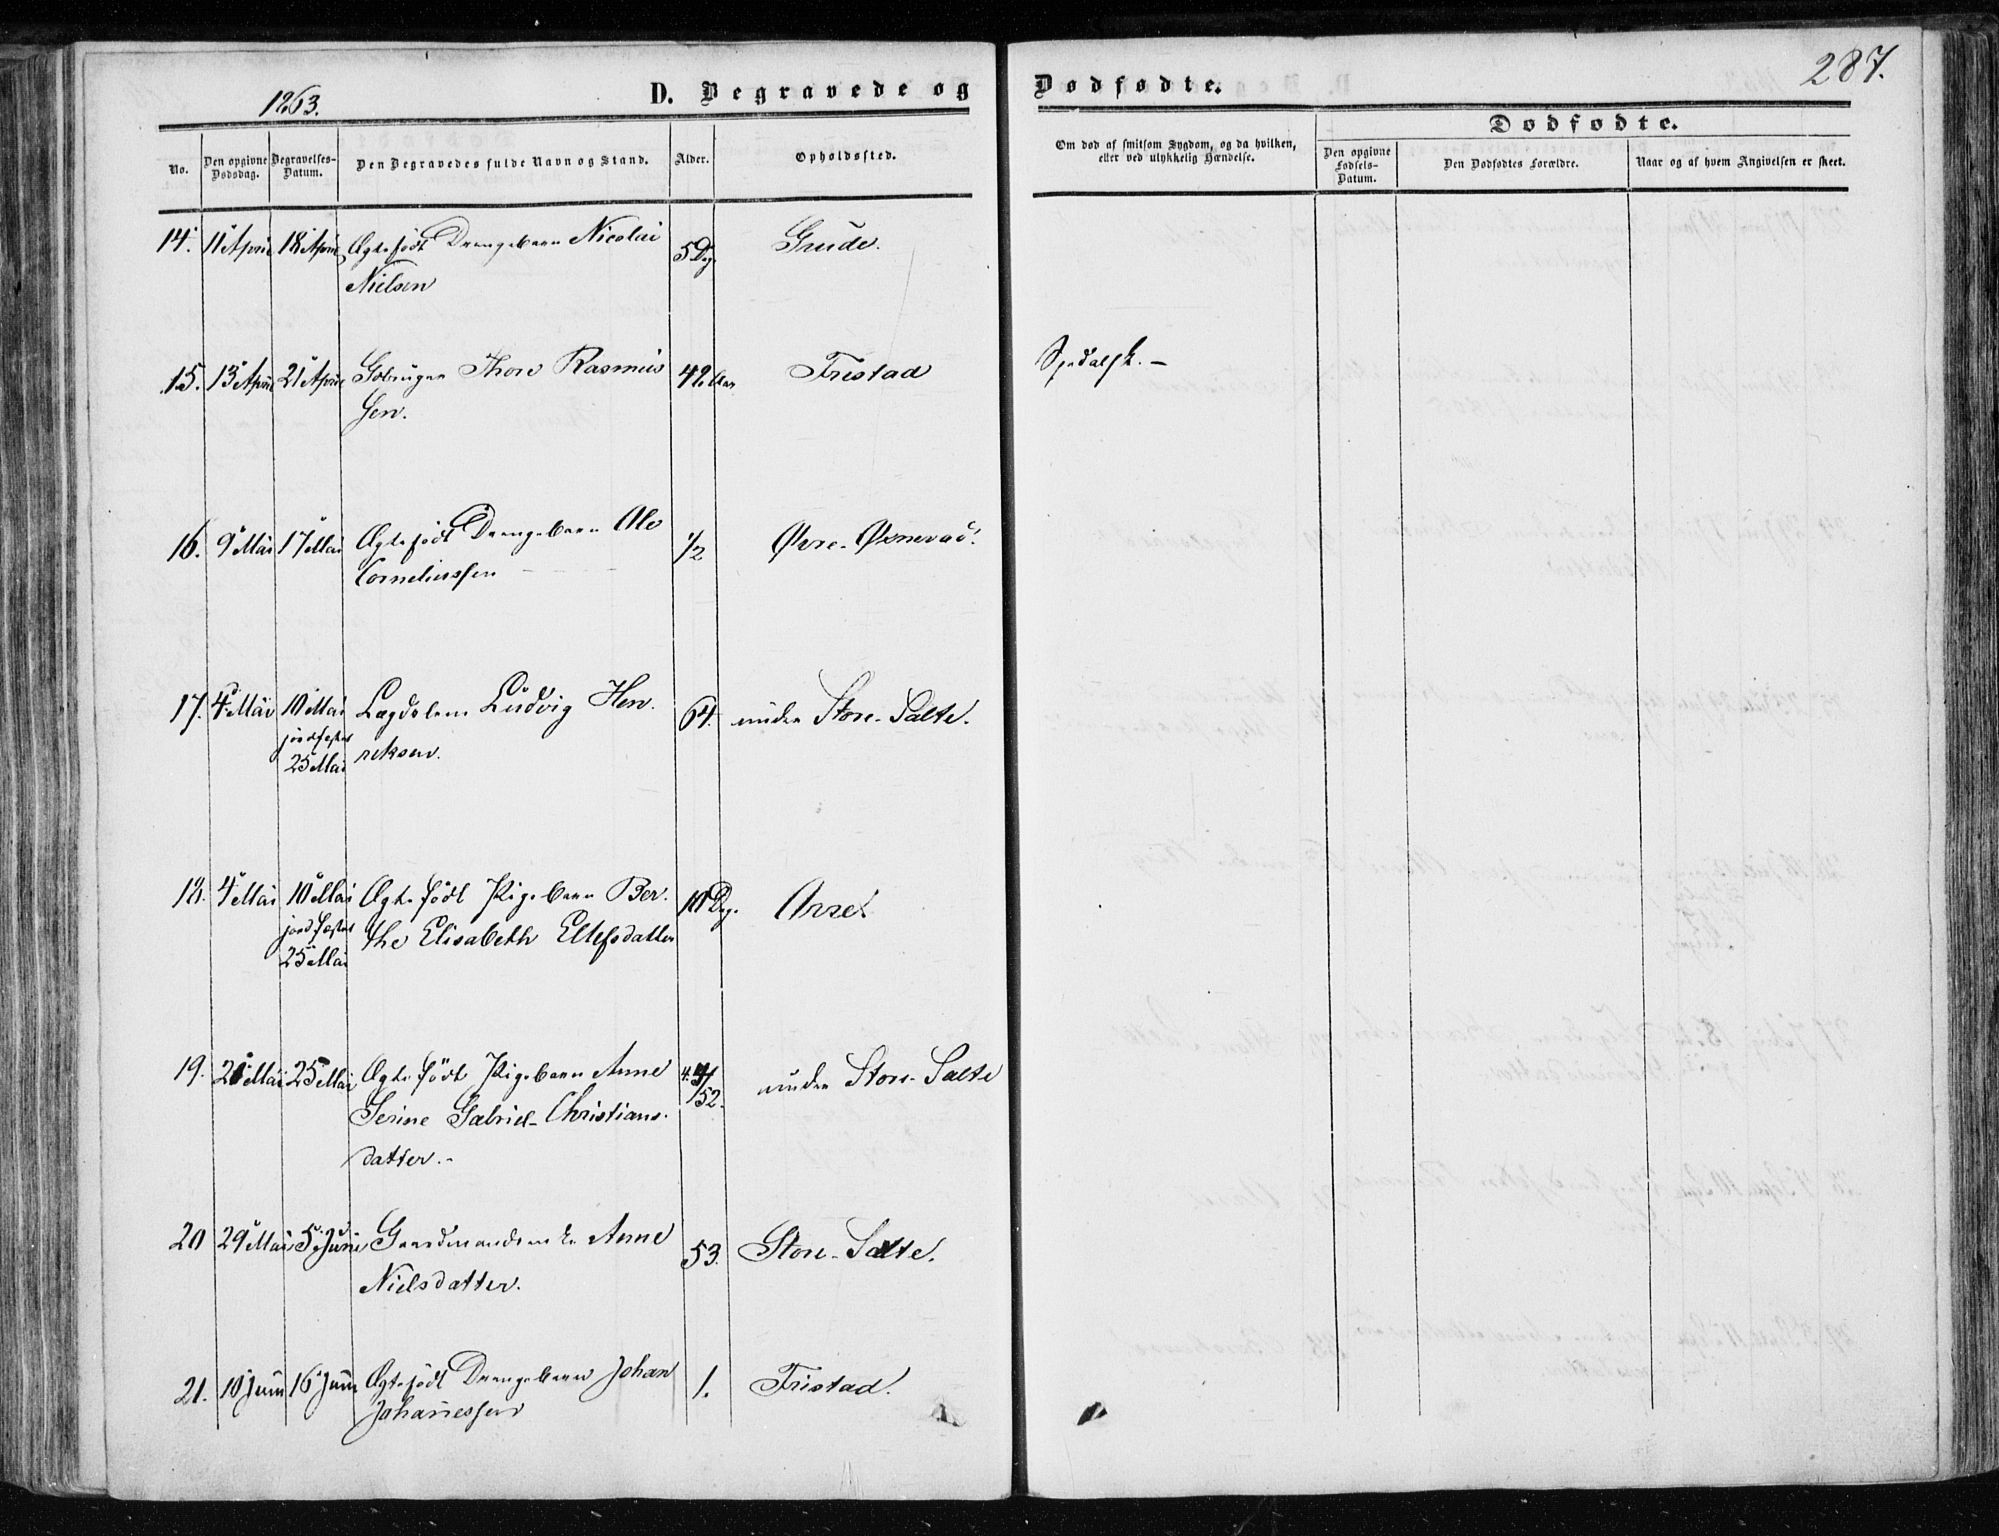 287.
1863.
D. Begravede og Dødfødte.
Dødfødte.
No.
Den opgivne Dødsdag.
Begravelses-Datum.
Den Begravedes fulde Navn og Stand.
Alder.
Opholdssted.
Om død af smitsom Sygdom, og da hvilken, eller ved ulykkelig Hændelse.
Den opgivne Fødsels-Datum.
Den Dødfødtes Forældre.
Naar og af hvem Angivelsen er skeet.
14. 11 April 18 April Ægtefødt Drengebarn Nicolai 5 Dg. Grude.
Nielsen
15. 13 April 21 April Gbruger Thore Rasmus 42 Aar Fristad Spedalsk. –
sen.
16. 9 Mai 17 Mai Ægtefødt Drengebarn Ole 1/2 Øvre-Øxnevad.
Corneliussen
17. 4 Mai 10 Mai Lægdslem Ludvig Hen- 64. under Store-Salte.
jordfæstet
25 Mai reksen.
18. 4 Mai 10 Mai Ægtefødt Pigebarn Ber- 10 Dg. Orre
jordfæstet the Elisabeth Ellefsdatter
25 Mai
19. 20 Mai 25 Mai Ægtefødt Pigebarn Anne 4/52. under Store-Salte
Serine Gabriel-Christians-
datter. –
20 29 Mai 5 Juni Gaardmandsenke Anne 53. Store-Salte.
Nielsdatter.
21. 10 Juni 16 Juni Ægtefødt Drengebarn Johan 1. Fristad.
Johannessen